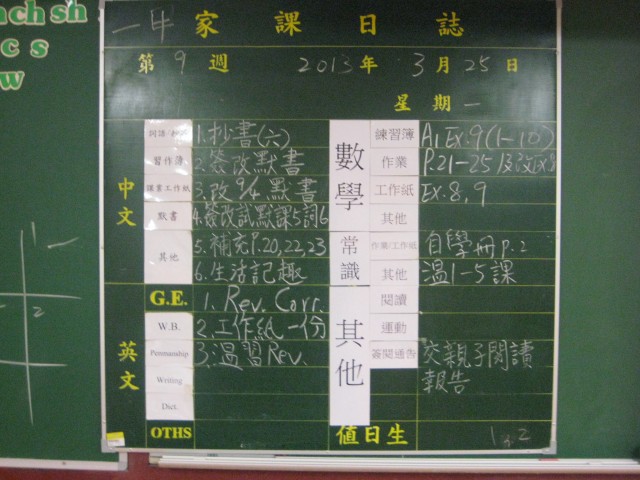 ach sh
c s
w
家課日誌
第 9 週 2013年 3月 25日
星期一
中文
習作簿
課業工作紙
默書
其他
1.抄書(六)
2.簽改默書
3.改94默書
4.簽改試默課5詞6
5.補充P.20,22,23
6.生活記趣
英文
G.E.
W.B.
Penmanship
Writing
Dict.
OTHS
1. Rev. Corr.
2.工作紙一份
3.溫習Rev.
數學
練習簿
作業
工作紙
其他
A1 Ex.9(1-10)
P.21-25及改Ex8
Ex.8,9
常識
作業/工作紙
其他
自學冊P.2
溫1-5課
其他
閱讀
運動
簽閱通告
交親子閱讀
報告
值日生
1
2